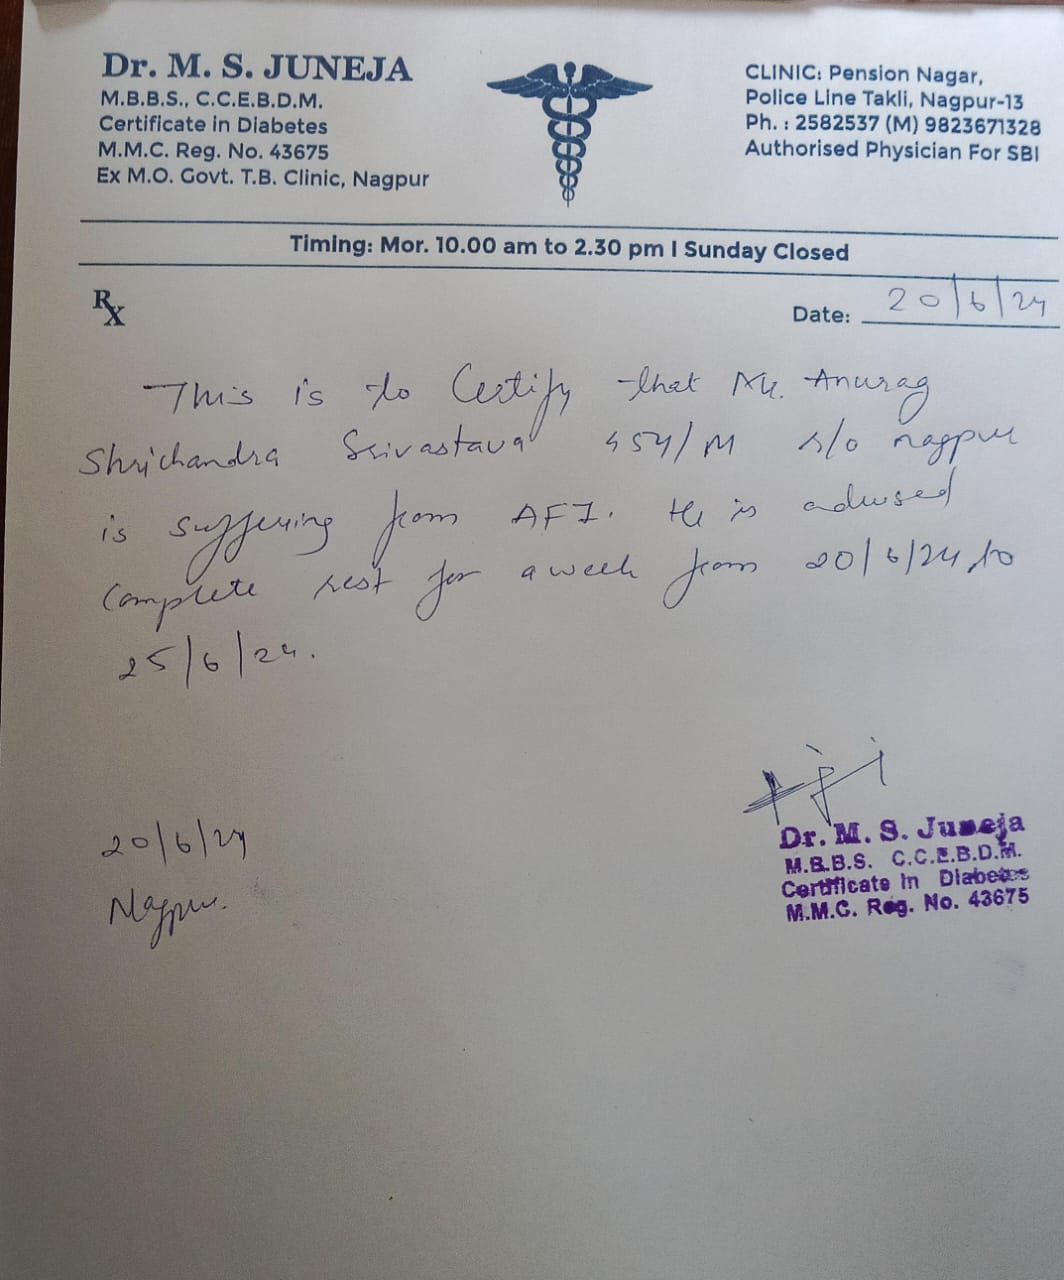 Dr. M. S. JUNEJA
M.B.B.S., C.C.E.B.D.M.
Certificate in Diabetes
M.M.C. Reg. No. 43675
Ex M.O. Govt. T.B. Clinic, Nagpur
CLINIC: Pension Nagar,
Police Line Takli, Nagpur-13
Ph. : 2582537 (M) 9823671328
Authorised Physician For SBI
Timing: Mor. 10.00 am to 2.30 pm I Sunday Closed
Rx
Date: 20/6/24
This is to Certify that Mr. Anurag
Shrichandra Srivastava 45y/M r/o nagpur
is suffering from AFI. He is advised
Complete rest for a week from 20/6/24 to
25/6/24.
Dr. M. S. Juneja
M.B.B.S. C.C.E.B.D.M.
Certificate in Diabetes
M.M.C. Reg. No. 43675
20/6/24
Nagpur.